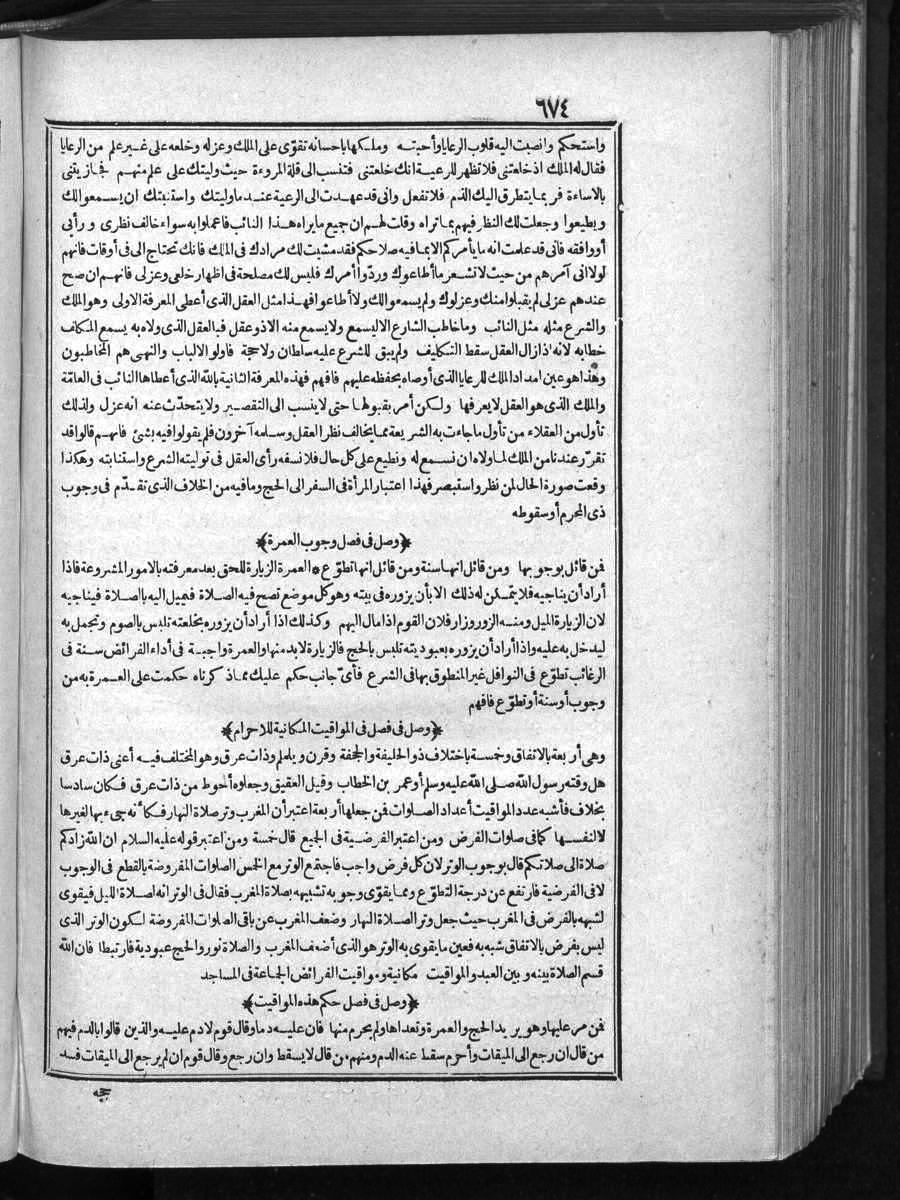 ٦٧٤
واستحكم وانصبت اليه قلوب الرعايا وأحبته وملكها باحسانه تقوّى على الملك وعزله وخلعه على غير علم من الرعايا
فقال له الملك اذ خلعتنى فلا تظهر للرعية انك خلعتنى فتنسب الى قلة المروءة حيث وليتك على علم منهم فجازيتنى
بالاساءة فربما يتطرق اليك الذم فلا تفعل وانى قد عهدت الى الرعية عند ما وليتك واستنبتك ان يسمعوا لك
ويطيعوا وجعلت لك النظر فيهم بما تراه وقلت لهم ان جميع ما يراه هذا النائب فاعملوا به سواء خالف نظرى ورأيى
أو وافقه فانى قد علمت انه ما يأمركم الا بما فيه صلاحكم فقد مشيت لك مرادك فى الملك فانك تحتاج الى فى أوقات فانهم
لولا انى آمرهم من حيث لا تشعر ما أطاعوك وردّوا أمرك فليس لك مصلحة فى اظهار خلعى وعزلى فانهم ان صح
عندهم عزلى لم يقبلوا منك وعزلوك ولم يسمعوا لك ولا أطاعوا فهذا مثل العقل الذى أعطى المعرفة الاولى وهو الملك
والشرع مثله مثل النائب وما خاطب الشارع الا ليسمع ولا يسمع منه الا ذو عقل فبالعقل الذى ولاه به يسمع المكلف
خطابه لانه اذا زال العقل سقط التكليف ولم يبق للشرع عليه سلطان ولا حجة فاولو الالباب والنهى هم المخاطبون
وهذا هو عين امداد الملك للرعايا الذى أوصاه بحفظه عليهم فافهم فهذه المعرفة الثانية بالله الذى أعطاها النائب فى العامّة
والملك الذى هو العقل لا يعرفها ولكن أمر بقبولها حتى لا ينسب الى التقصير ولا يتحدّث عنه انه عزل ولذلك
تأول من العقلاء من تأول ما جاءت به الشريعة مما يخالف نظر العقل وسلمه آخرون فلم يقولوا فيه بشئ فانهم قالوا قد
تقرّر عندنا من الملك لما ولاه ان نسمع له ونطيع على كل حال فلا نسفه رأى العقل فى توليته الشرع واستنابته وهكذا
وقعت صورة الحال لمن نظر واستبصر فهذا اعتبار المرأة فى السفر الى الحج وما فيه من الخلاف الذى تقدّم فى وجوب
ذى المحرم أو سقوطه
﴿وصل فى فصل وجوب العمرة﴾
فمن قائل بوجوبها ومن قائل انها سنة ومن قائل انها تطوّع * العمرة الزيارة للحق بعد معرفته بالامور المشروعة فاذا
أراد أن يناجيه فلا يتمكن له ذلك الا بأن يزوره فى بيته وهو كل موضع تصح فيه الصلاة فيميل اليه بالصلاة فيناجيه
لان الزيارة الميل ومنه الزور وزار فلان القوم اذا مال اليهم وكذلك اذا أراد أن يزوره بخلعته تلبس بالصوم وتجمل به
ليدخل به عليه واذا أراد أن يزوره بعبوديته تلبس بالحج فالزيارة لا بد منها والعمرة واجبة فى أداء الفرائض سنة فى
الرغائب تطوّع فى النوافل غير المنطوق بها فى الشرع فأىّ جانب حكم عليك مما ذكرناه حكمت على العمرة به من
وجوب أو سنة أو تطوّع فافهم
﴿وصل فى فصل فى المواقيت المكانية للاحرام﴾
وهى أربعة بالاتفاق وخمسة باختلاف ذو الحليفة والجحفة وقرن ويلملم وذات عرق وهو المختلف فيه أعنى ذات عرق
هل وقته رسول الله صلى الله عليه وسلم أو عمر بن الخطاب وقيل العقيق وجعلوه أحوط من ذات عرق فكان سادسا
بخلاف فأشبه عدد المواقيت أعداد الصلوات فمن جعلها أربعة اعتبر أن المغرب وتر صلاة النهار فكأنه جىء بها لغيرها
لا لنفسها كما فى صلوات الفرض ومن اعتبر الفرضية فى الجميع قال خمسة ومن اعتبر قوله عليه السلام ان الله زادكم
صلاة الى صلاتكم قال بوجوب الوتر لان كل فرض واجب فاجتمع الوتر مع الخمس الصلوات المفروضة بالقطع فى الوجوب
لا فى الفرضية فارتفع عن درجة التطوّع ومما يقوّى وجوبه تشبيهه بصلاة المغرب فقال فى الوتر انه لصلاة الليل فيقوى
لشبهه بالفرض فى المغرب حيث جعل وتر الصلاة النهار وضعف المغرب عن باقى الصلوات المفروضة لكون الوتر الذى
ليس بفرض بالاتفاق شبه به فعين ما يقوى به الوتر هو الذى أضعف المغرب والصلاة نور والحج عبودية فارتبطا فان الله
قسم الصلاة بينه وبين العبد والمواقيت مكانية ومواقيت الفرائض الجماعة فى المساجد
﴿وصل فى فصل حكم هذه المواقيت﴾
فمن مر عليها وهو يريد الحج والعمرة وتعداها ولم يحرم منها فان عليه دما وقال قوم لا دم عليه والذين قالوا بالدم فيهم
من قال ان رجع الى الميقات وأحرم سقط عنه الدم ومنهم من قال لا يسقط وان رجع وقال قوم ان لم يرجع الى الميقات فسد
حجه